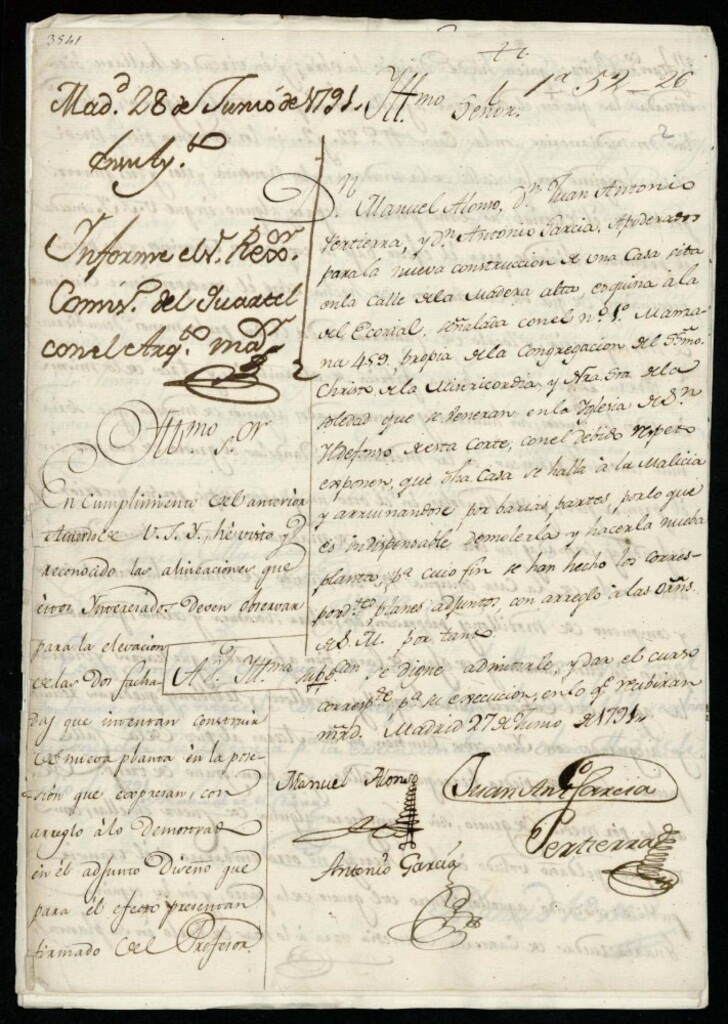 3541
1ª 52 - 26
2
Madᵈ. 28 de Junio de 1791.
Informe el Sʳ. Rexᵒʳ.
Comisᵒ. del Quartel
con el Arqᵗᵒ. maʸᵒʳ
Yllᵐᵒ Sᵒʳ
En Cumplimiento del anterior
Acuerdo de V.S.Y., he visto y
reconocido las alineaciones que
estos Interesados deven observar
para la elevacion
de las dos facha
das que intentan construir
de nueva planta en la pose-
sion que expresan, con
arreglo â lo demostrado
en el adjunto Diseño que
para el efecto presentan
firmado del Profesor
Yllᵐᵒ Señor.
Dⁿ. Manuel Alonso, Dⁿ. Juan Antonio
Pertierra, y Dⁿ. Antonio Garcia, Apoderados
para la nueva construccion de una Casa sita
en la Calle de la Madera alta, esquina â la
del Ecorial, señalada con el nº. 1º. Manza-
na 459, propia de la Congregacion del SSᵐᵒ.
Christo de la Misericordia, y Nra. Sra. de la
Soledad que se veneran en la Yglesia de Sⁿ.
Yldefonso de esta Corte, con el debido respeto
exponen, que dha. Casa se halla â la Malicia
y arruinandose por barias partes, por lo que
es indispensable demolerla, y hacerla nueba
planta, pª. cuio fin se han hecho los corres-
pondᵗᵉˢ planes adjuntos, con arreglo â las Orñs.
de S. M. por tanto
A V. Yllᵐᵃ. supᶜᵃⁿ se digne admitirle, y dar el curso
correspᵗᵉ pª su execucion, en lo qᵉ recibiran
mrd. Madrid 27 de Junio de 1791.
Manuel Alonso
Juan Antº Garcia
Pertierra
Antonio Garcia